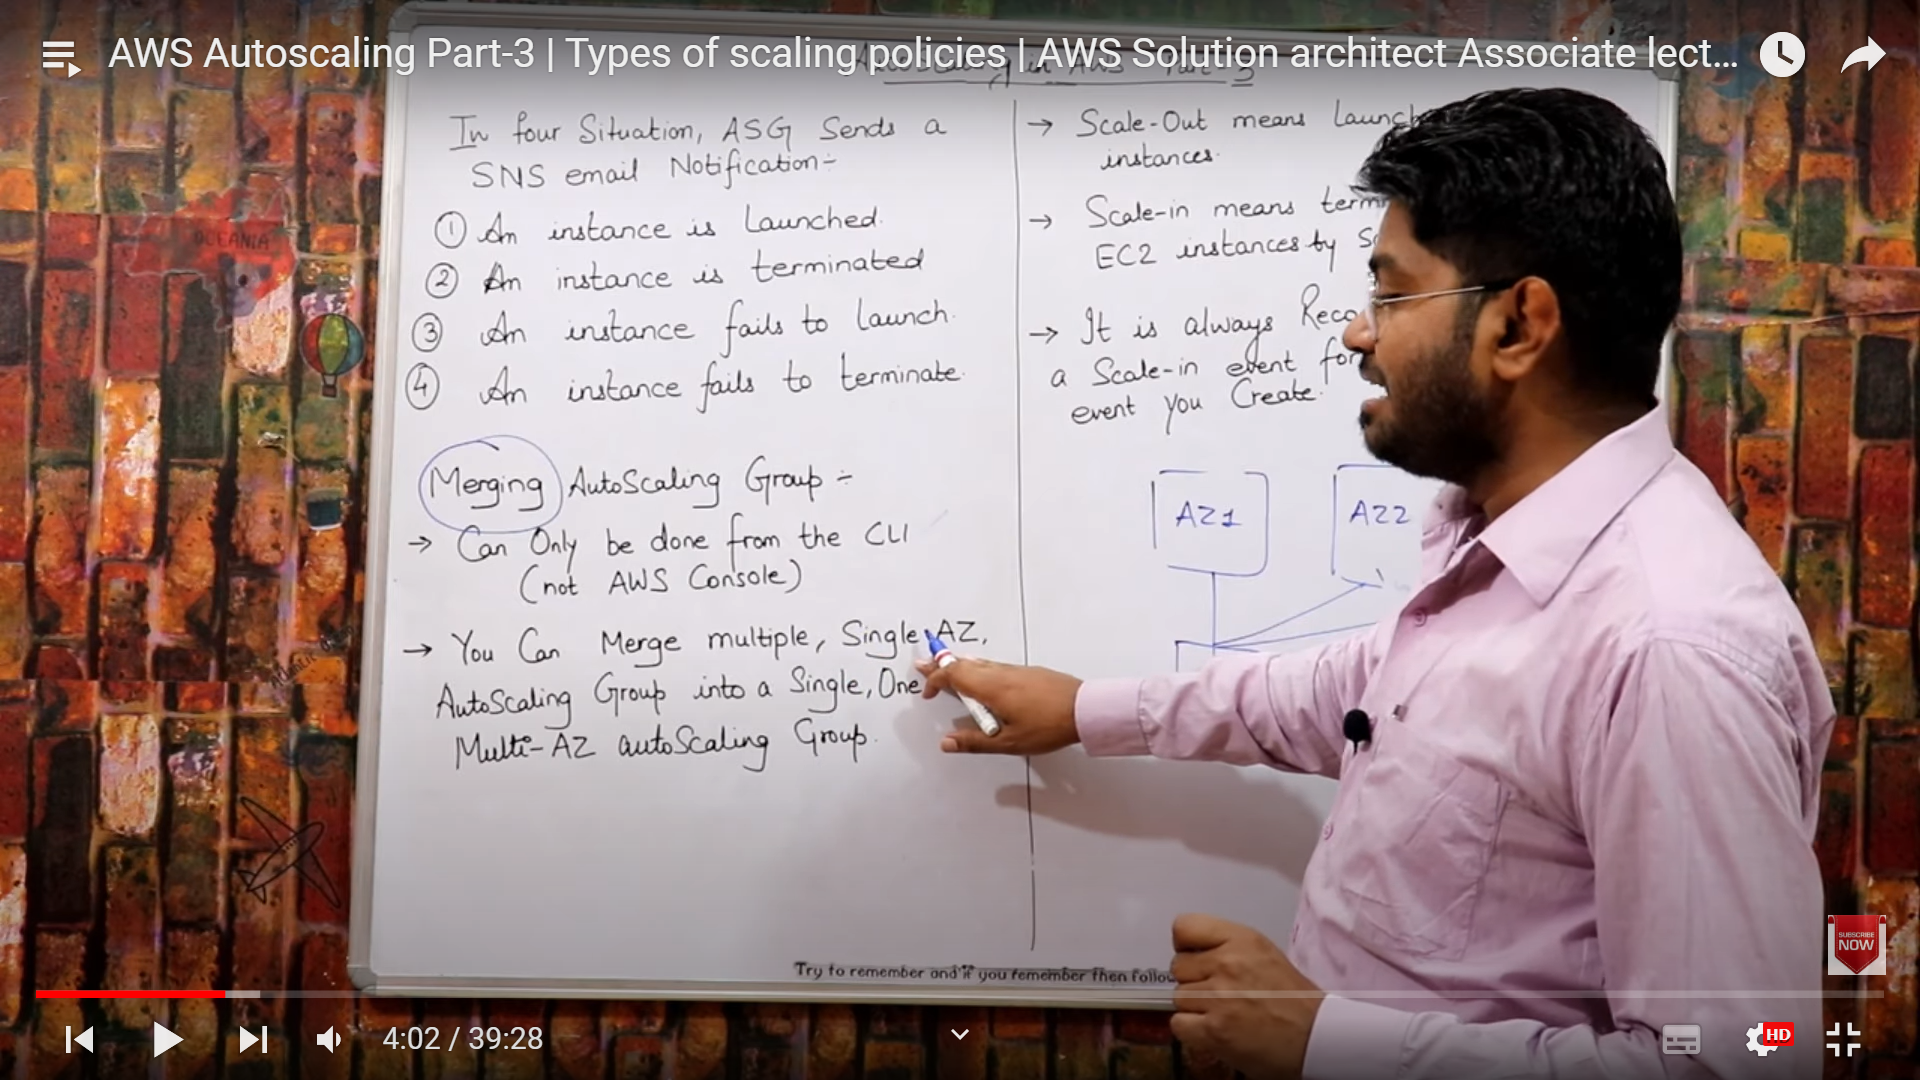 AWS Autoscaling Part-3 | Types of scaling policies | AWS Solution architect Associate lect...
in AWS Part-3
In four Situation, ASG Sends a
SNS email Notification:-
① An instance is Launched.
② An instance is terminated
③ An instance fails to launch.
④ An instance fails to terminate.
Merging AutoScaling Group:-
→ Can Only be done from the CLI
(not AWS Console)
→ You Can Merge multiple, Single AZ,
AutoScaling Group into a Single, One
Multi-AZ autoScaling Group.
→ Scale-Out means Launch
instances.
→ Scale-in means term
EC2 instances by
→ It is always Reco
a Scale-in event for
event you Create.
AZ1
AZ2
OCEANIA
Try to remember and if you remember then follow
SUBSCRIBE
NOW
4:02 / 39:28
HD